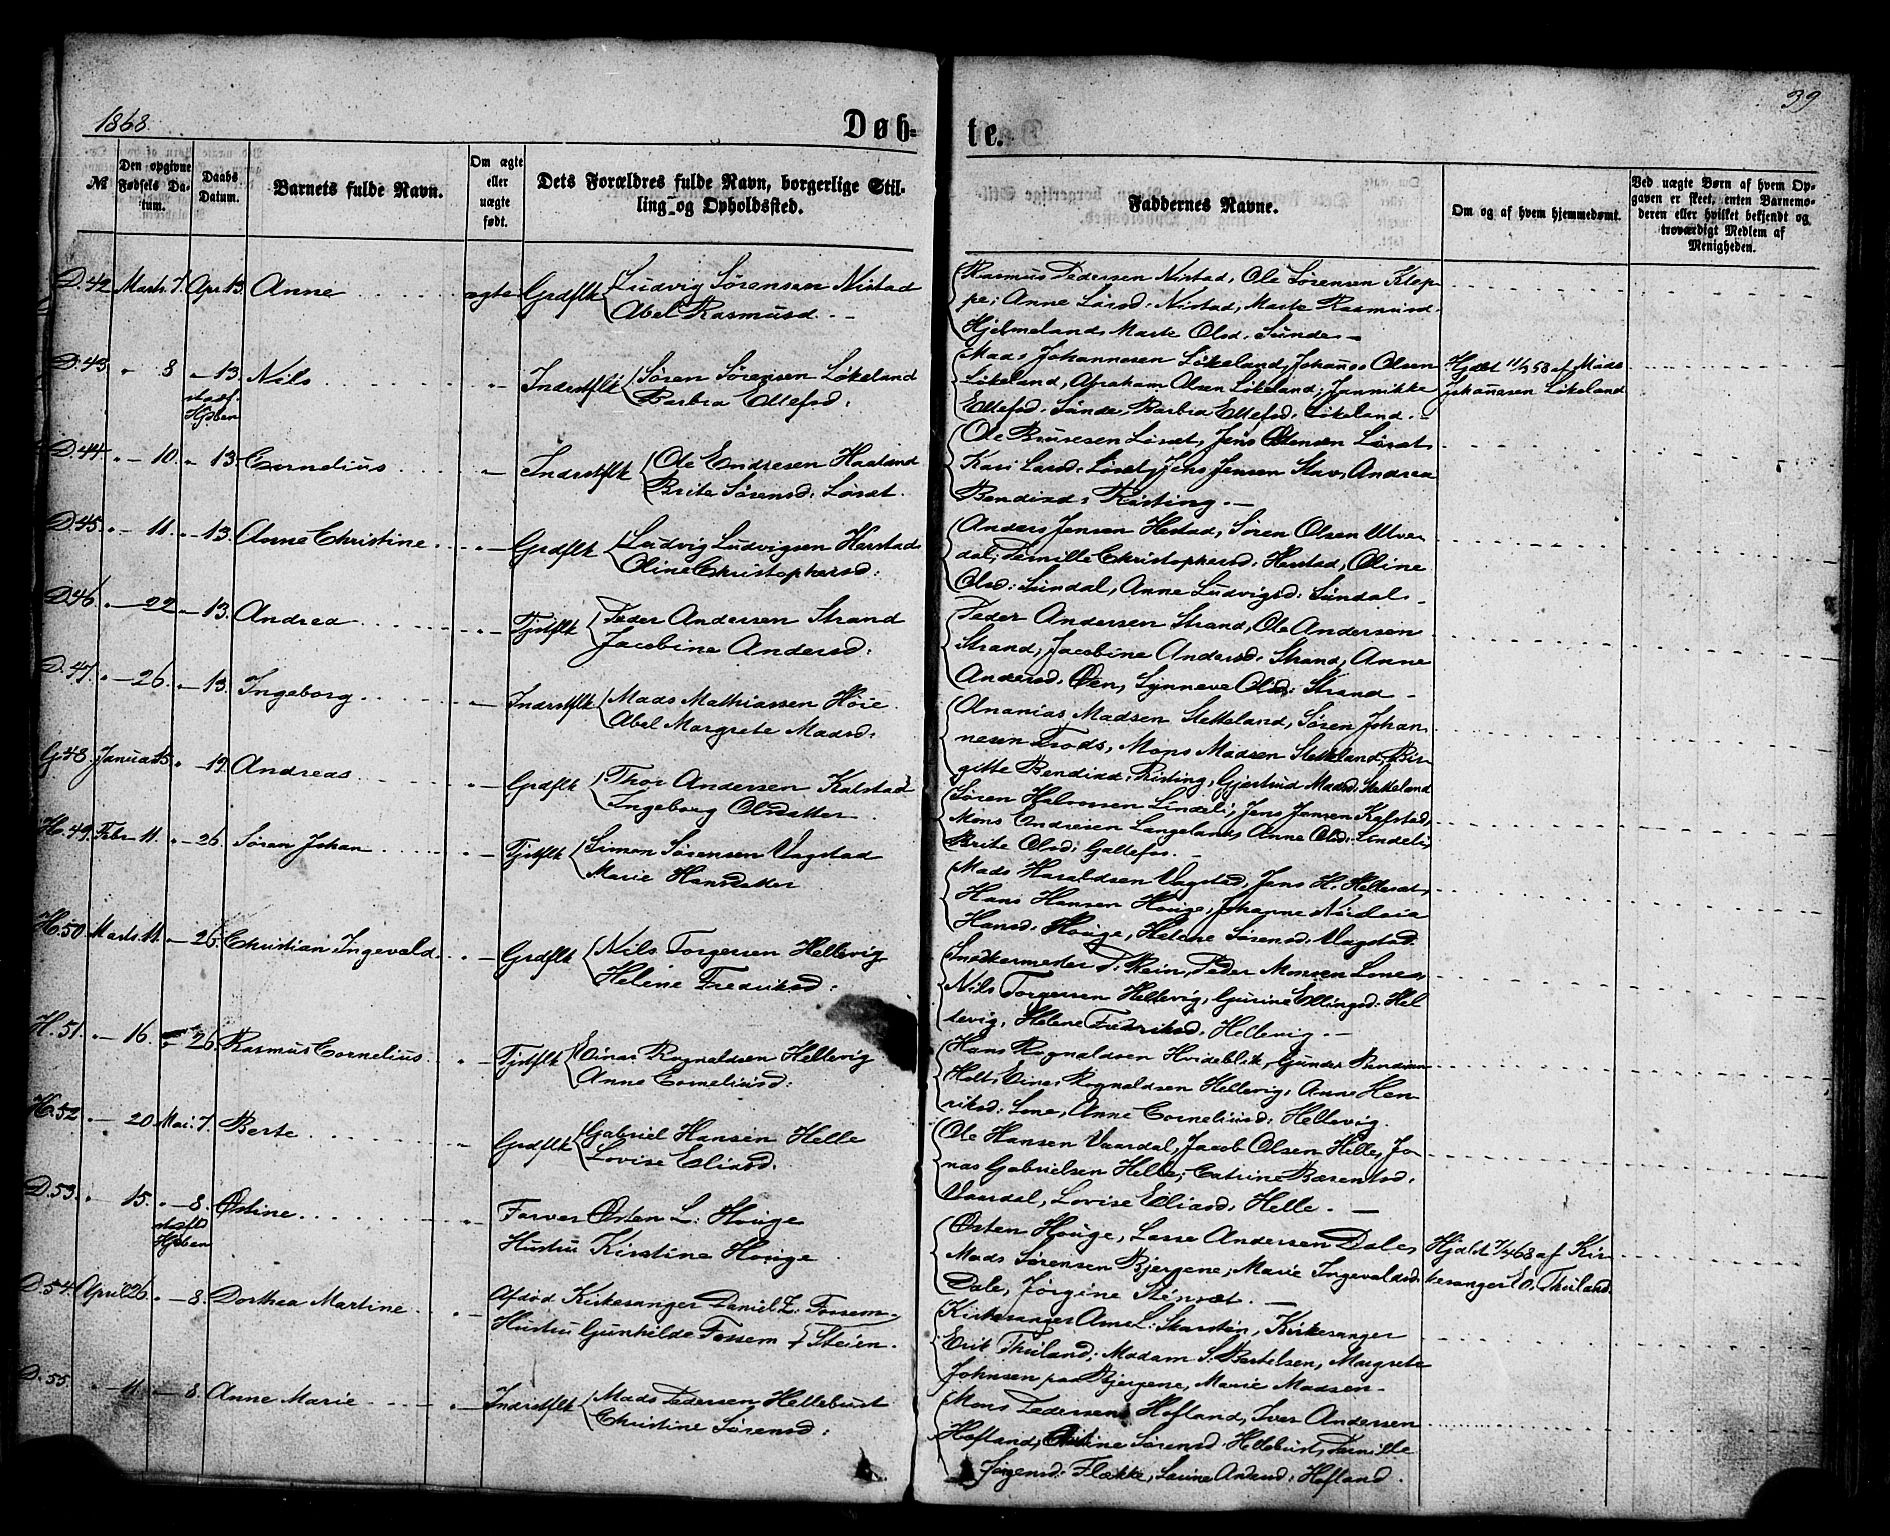 1868
39
Døb-
te.
№
Den opgivne Fødsels Da-tum.
Daabs Datum.
Barnets fulde Navn.
Om ægte eller uægte født.
Dets Forældres fulde Navn, borgerlige Stil-
ling og Opholdssted.
Faddernes Navne.
Om og af hvem hjemmedøbt.
Ved uægte Børn af hvem Op-
gaven er skeet, enten Barnemo-
deren eller hvilket bekjendt og
troværdigt Medlem af
Menigheden.
D. 42 Marts 7. Apr. 13. Anne ægte Grdflk Ludvig Sørensen Nistad
Abel Rasmusd. -
Rasmus Pedersen Nistad, Ole Sørensen Klop-
pe; Anne Larsd. Nistad, Marte Rasmusd.
Hjelmeland, Marte Olsd. Sunde -
D. 43. " 8 " 13. Nils " Indrstflk Søren Sørensen Løkeland
stadf. Hjøben
Barbra Ellefsd:
Mads Johannesen Løkeland, Johanes Olsen
Løkeland, Abraham Olsen Løkeland; Jannikke
Ellefsd. Sunde, Barbra Ellefsd. Løkeland. -
Hjdbt 11/3 58 af Mads
Johanesen Løkeland
D. 44 " 10. " 13. Cornelius " Indrstflk Ole Endresen Haaland
Brite Sørensd: Løset.
Ole Bruresen Løset, Jens Løset
Kari Larsd. Løset, Jens Jensen Stav, Andrea
Bendixd. Risting. -
D. 45. " 11. " 13. Anne Christine " Grdflk Ludvig Ludvigsen Herstad
Oline Christophersd:
Anders Jensen Hestad, Søren Olsen Utve-
dal; Pernille Christophersd. Herstad, Oline
Olsd: Sundal, Anne Ludvigsd: Sundal -
D. 46 " 22 " 13. Andrea " Tjstflk Peder Andersen Strand
Jacobine Andersd:
Peder Andersen Strand, Ole Andersen
Strand, Jacobine Andersd. Strand, Anne
Andersd. Øen, Synneve Olsd: Strand -
D. 47. " 26. " 13. Ingeborg " Indrstflk Mads Mathiassen Høie.
Abel Margrete Madsd:
Ananias Madsen Stekeland, Søren Johan-
nesen Frods, Mons Madsen Stekeland, Bir-
gitte Bendixd: Risting, Gjertrud Madsd. Stekeland
G. 48 Januar 15. " 19. Andreas " Grdflk Thor Andersen Kalstad
Ingeborg Olsdatter.
Søren Halvorsen Lindeli, Jens Jensen Kalstad,
Mons Andresen Langeland, Anne Olsd. Lindeli,
Brite Olsd: Galtefos. -
H. 49. Febr 11. " 26. Søren Johan " Tjstflk Simon Sørensen Vagstad
Marie Hansdatter
Mads Haraldsen Vagstad, Jens H. Helleset,
Hans Hansen Houge, Johanne Nicoleia
Hansd: Houge, Helene Sørensd: Vagstad.
H. 50. Marts 11. " 26. Christian Ingevald " Grdflk Nils Torgersen Hellevig
Helene Fredriksd:
Snedkermester D. Rein, Peder Monsen Lone,
Nils Torgersen Hellevig, Gurine Ellingsd: Hel-
levig, Helene Fredriksd. Hellevig. -
H. 51. " 16. " 26. Rasmus Cornelius " Tjstflk Einar Rognaldsen Hellevig
Anne Corneliusd:
Hans Rognaldsen Hvideblik, Gunder Bendixen
Holt, Einar Rognaldsen Hellevig, Anne Hen-
riksd: Lone, Anne Corneliusd: Hellevig.
H. 52 " 20 Mai: 7. Berte " Grdflk Gabriel Hansen Helle
Lovise Eliasd:
Ole Hansen Vaardal, Jacob Olsen Helle, Jo-
nas Gabrielsen Helle; Catrine Bærentsd.
Vaardal, Lovise Eliasd, Helle. -
D. 53. " 15. " 8. Østine " Farver Østen L: Houge
stadf. Hjøben
Hustru Kirstine Houge
Østen Houge, Lasse Andersen Dale,
Mads Sørensen Bjergene; Marie Ingevaldsd.
Dale, Jørgine Stenset. -
Hjdbt 7/4 68 af Kir-
kesanger E. O. Thuland.
D. 54. April 26. " 8. Dorthea Martine " Afdød Kirkesanger Daniel L: Fossem
Hustru Gunhilde Fossem f. Steien.
Kirkesanger Arne L: Skarstein, Kirkesanger
Erik Thuland; Madam S. Bertelsen, Margrete
Johnsen paa Bjergene, Marie Madsen.
D. 55. " 11. " 8. Anne Marie " Indrstflk Mads Pedersen Hellebust
Christine Sørensd:
Mons Pedersen Hofland, Iver Andersen
Hofland, Sørensd. Hellebust, Pernille
Jørgensd: Flekke, Andersd: Hofland.